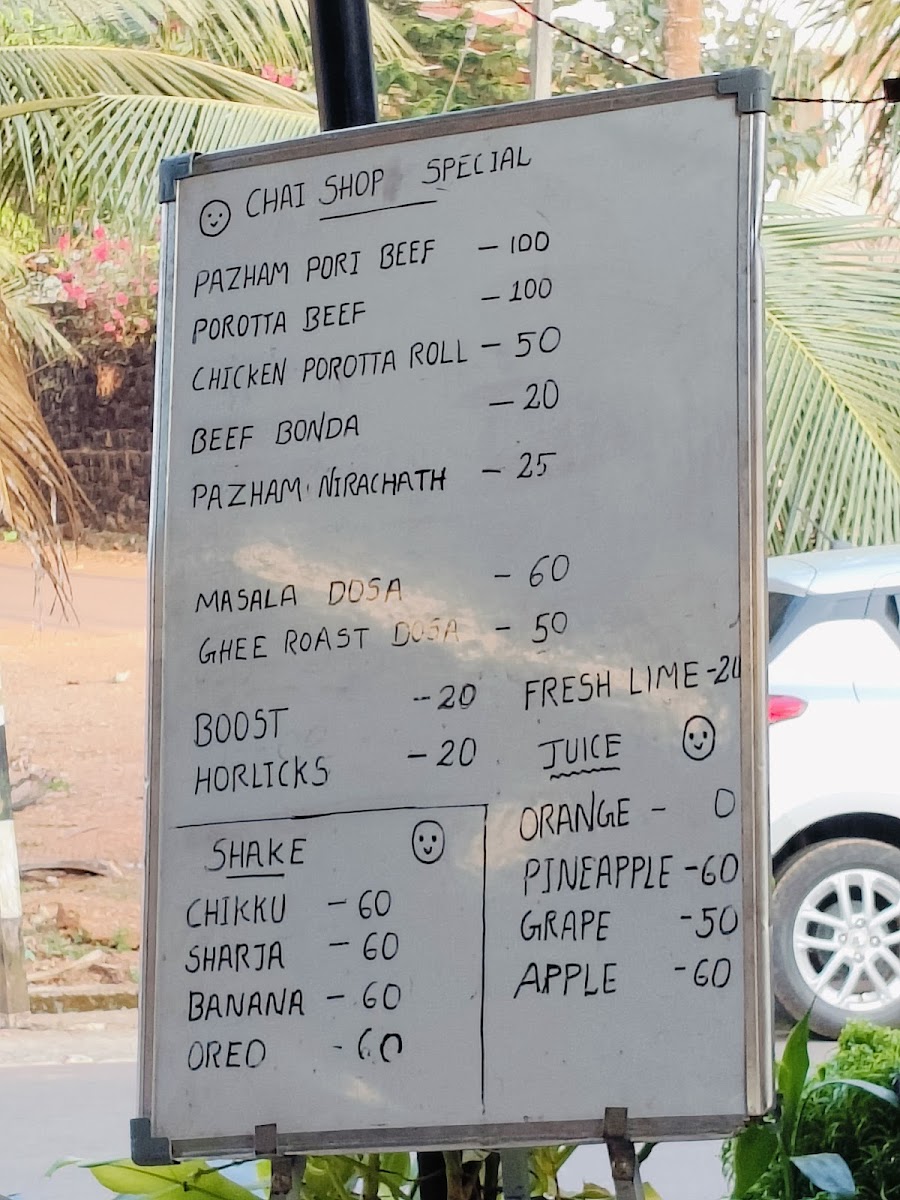 CHAI SHOP SPECIAL
PAZHAM PORI BEEF - 100
POROTTA BEEF - 100
CHICKEN POROTTA ROLL - 50
BEEF BONDA - 20
PAZHAM NIRACHATH - 25
MASALA DOSA - 60
GHEE ROAST DOSA - 50
BOOST - 20
HORLICKS - 20
FRESH LIME - 20
JUICE
ORANGE - 0
PINEAPPLE - 60
GRAPE - 50
APPLE - 60
SHAKE
CHIKKU - 60
SHARJA - 60
BANANA - 60
OREO - 60